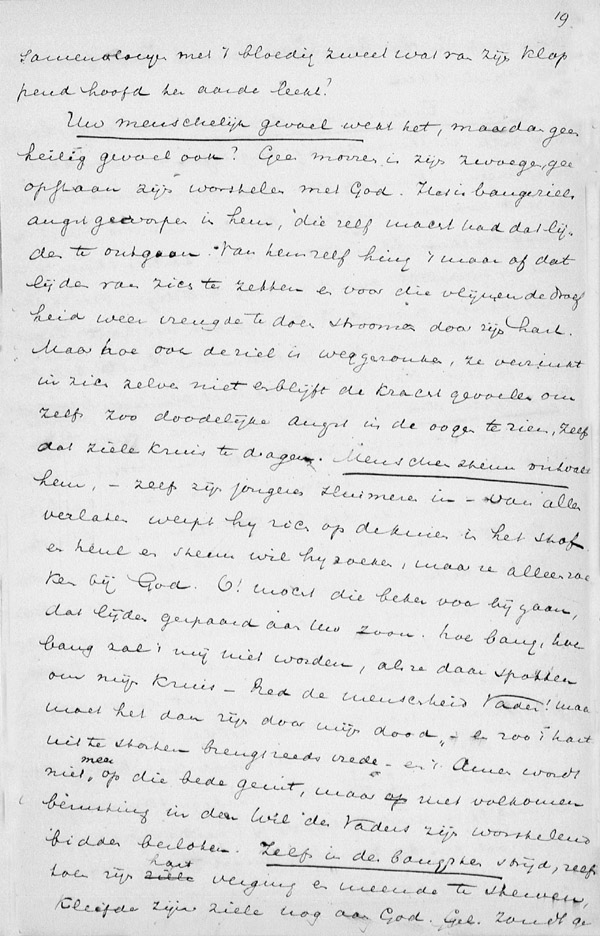 19
met 't bloedig zweet wat van zijn klop
pend hoofd ter aarde lekt?
Uw menschelijk gevoel wekt het, maar dan geen
heilig gevoel ook? Geen morren is zijn zwoegen, geen
opstaan zijn worstelen met God. Het is bange ziels
angst geworpen in hem, die zelf macht had dat lij
den te ontgaan. Van hemzelf hing 't maar af dat
lijden van zich te zetten en voor die vlijmende droef
heid weer vreugde te doen stroomen door zijn hart.
Maar hoe ook de ziel is weggezonken, ze verzinkt
in zich zelve niet en blijft de kracht gevoelen om
zelfs zoo doodelijke angst in de oogen te zien, zelfs
dat ziele kruis te dragen. Menschen steun ontvalt
hem, – zelf zijn jongeren sluimeren in – van allen
verlaten werpt hy zich op de knieen in het stof
en heul en steun wil hy zoeken, maar ze alleen zoe
ken bij God. O! mocht die beker voor bij gaan,
dat lijden gespaard aan Uw zoon. hoe bang, hoe
bang zal 't mij niet worden, als ze daar spotten
om mijn kruis – Red de menschheid Vader! maar
moet het dan zijn door mijn dood, – en zoo 't hart
uit te storten brengt reeds vrede – en 't Amen wordt
niet meer op die bede geuit, maar met volkomen
berusting in den wil des Vaders zijn worstelend
bidden besloten. Zelfs in den bangsten strijd, zelfs
toen zijn hart verging en meende te sterven,
kleefde zijn ziele nog aan God. Gel. Zondt ge